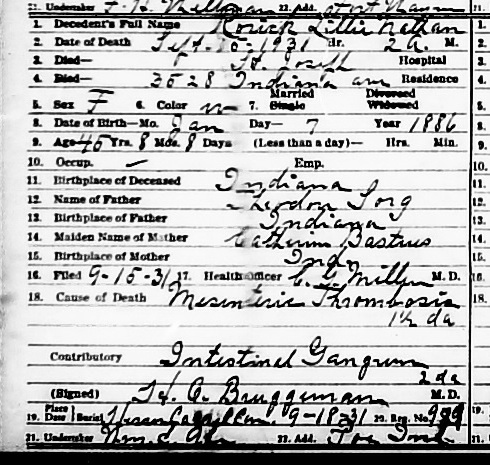 21. Undertaker F. H. 22. Add. Wayne
1. Decedent's Full Name Rosick Lillie Nathan
2. Date of Death Sept. 15-1931 Hr. 2 A. M.
3. Died— St. Joseph Hospital
4. Died— 3528 Indiana ave Residence
Married Divorced
5. Sex F 6. Color w 7. Single Widowed
8. Date of Birth—Mo. Jan Day— 7 Year 1886
9. Age 45 Yrs. 8 Mos. 8 Days (Less than a day)— Hrs. Min.
10. Occup. — Emp.
11. Birthplace of Deceased Indiana
12. Name of Father Theodore Sorg
13. Birthplace of Father Indiana
14. Maiden Name of Mother Catherine
15. Birthplace of Mother Ind
16. Filed 9-15-31 17. Health Officer Miller M. D.
18. Cause of Death Mesenteric Thrombosis
1½ da
Contributory Intestinal Gangrene
2 da
(Signed) H. A. Bruggeman M. D.
19. Place Date } Burial 9-18-31 20. Reg. No. 999
21. Undertaker 22. Add. Ind